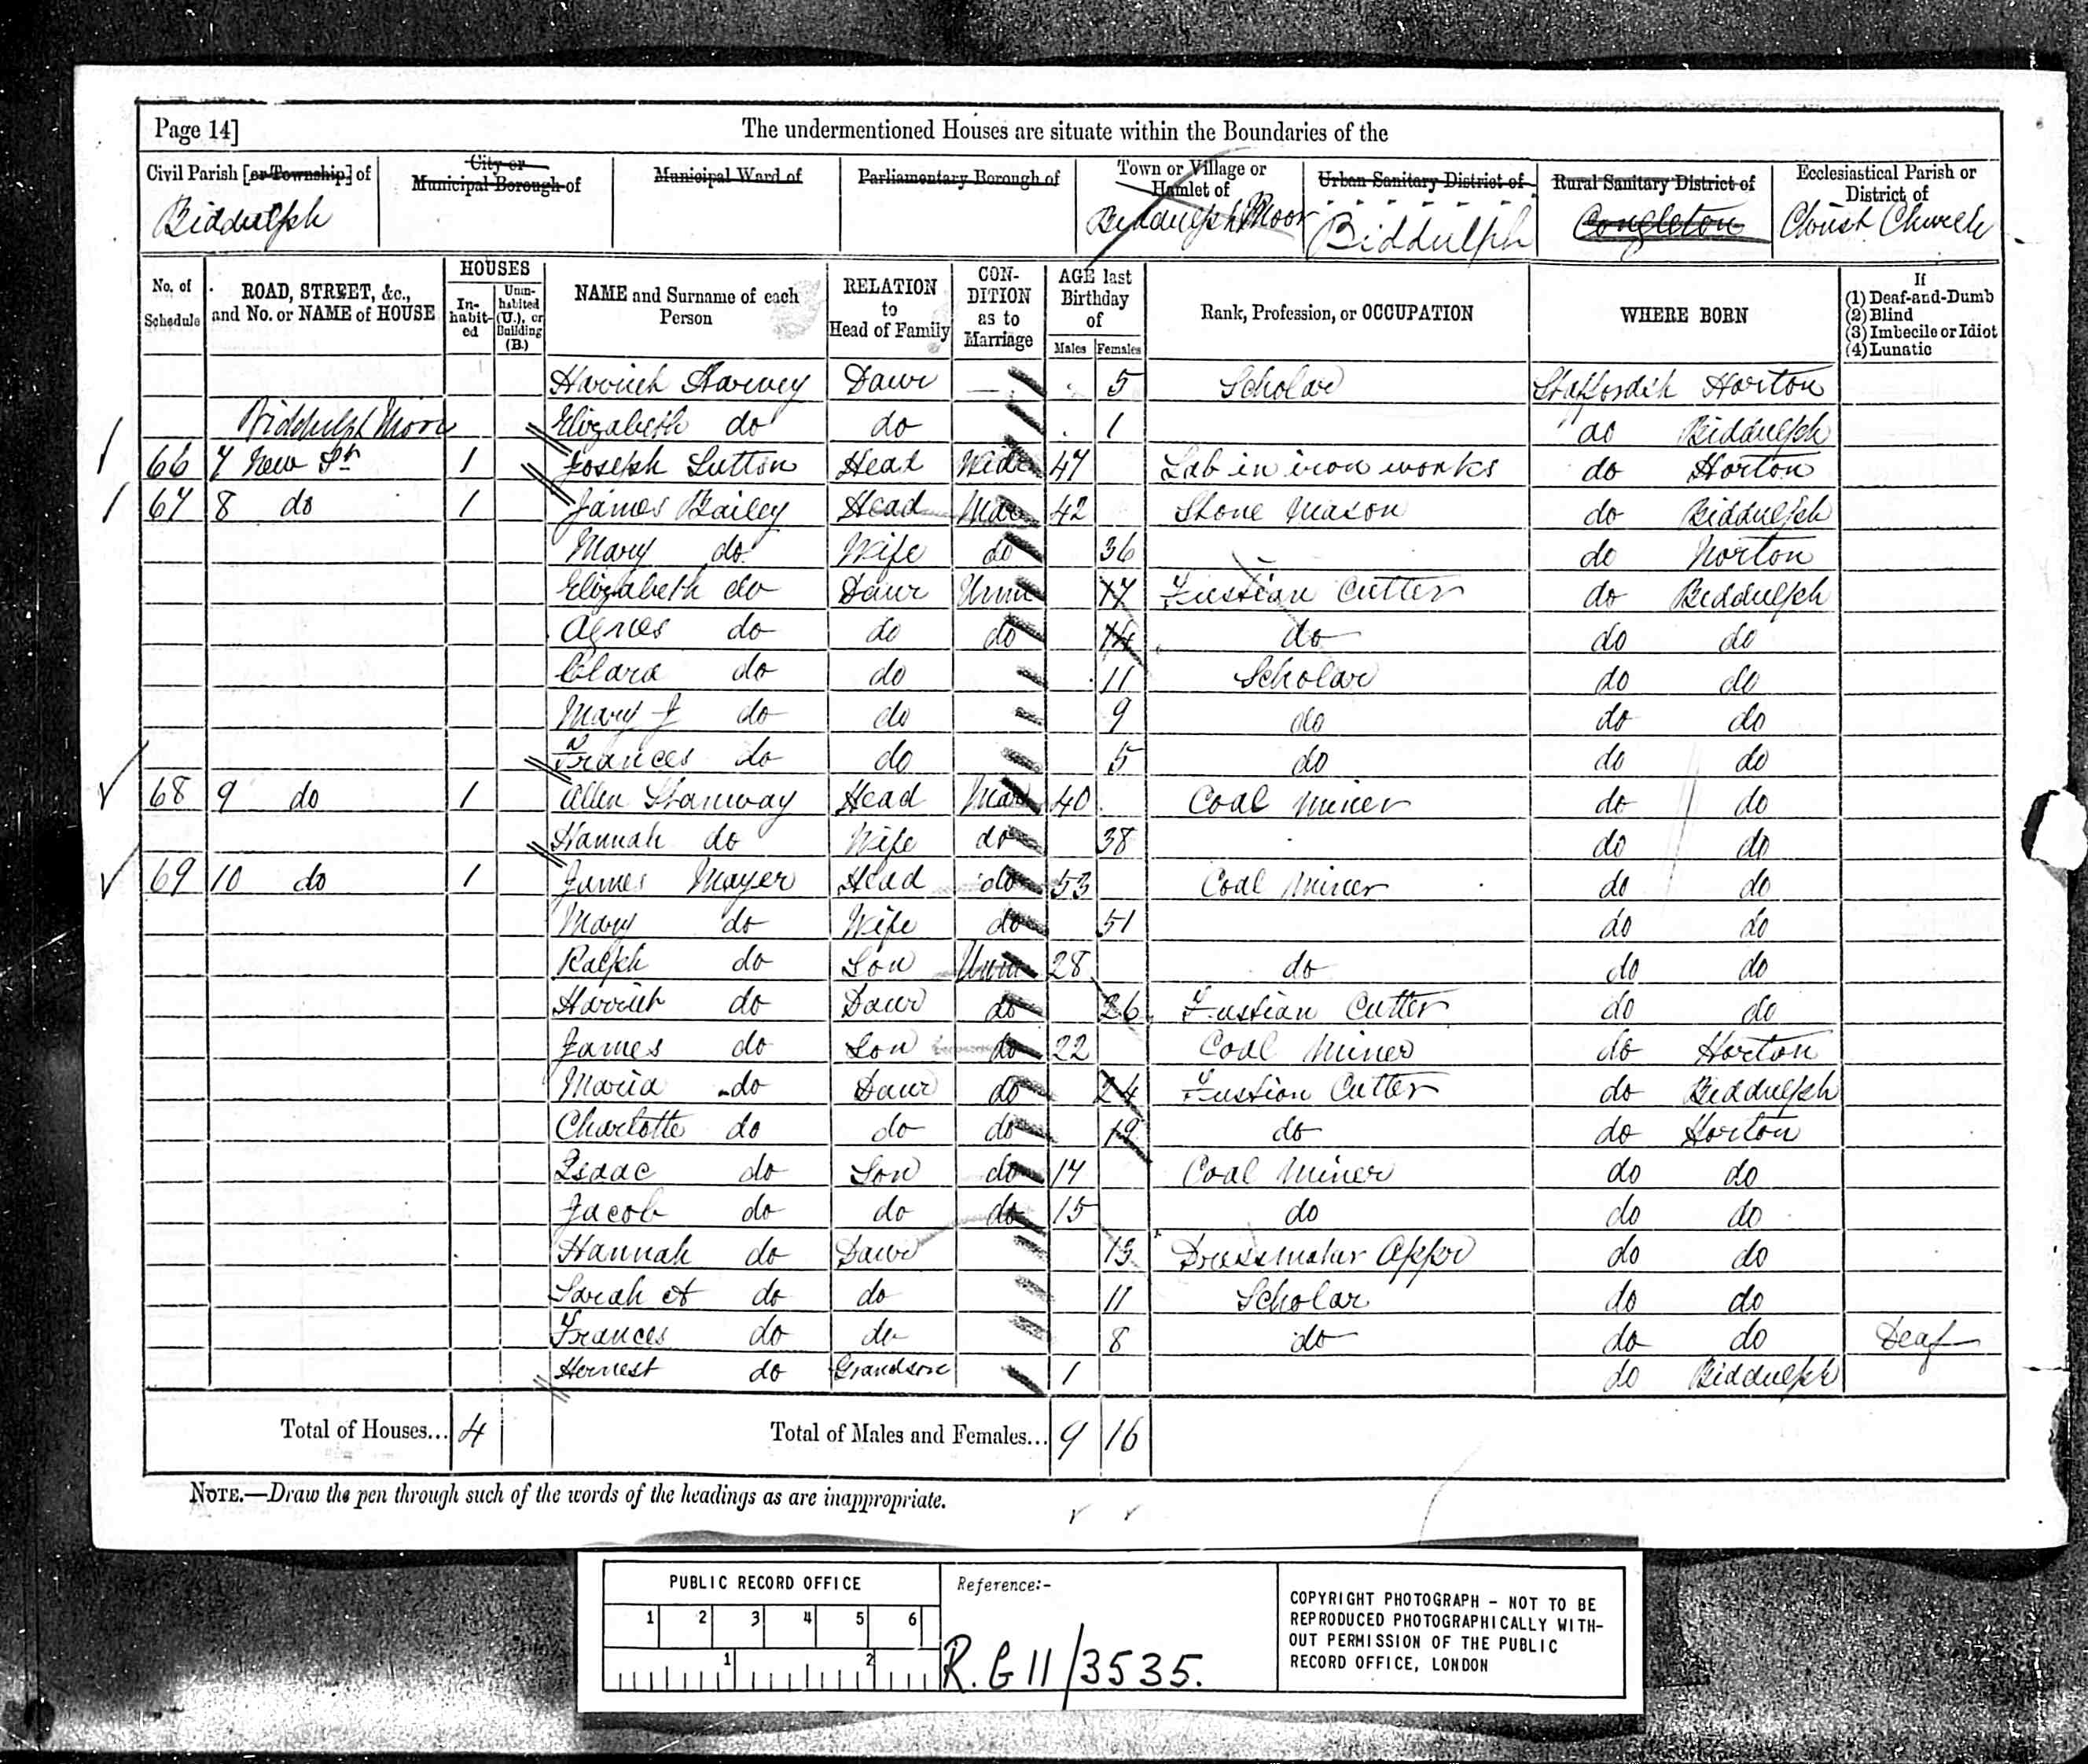 Page 14]
The undermentioned Houses are situate within the Boundaries of the
Civil Parish [or Township] of
City or Municipal Borough of
Municipal Ward of
Parliamentary Borough of
Town or Village or Hamlet of
Urban Sanitary District of
Rural Sanitary District of
Ecclesiastical Parish or District of
Biddulph
Biddulph Moor
Biddulph
Congleton
Christ Church
No. of Schedule
ROAD, STREET, &c., and No. or NAME of HOUSE
HOUSES
In-habit-ed
Unin-habited (U.), or Building (B.)
NAME and Surname of each Person
RELATION to Head of Family
CON-DITION as to Marriage
AGE last Birthday of
Males
Females
Rank, Profession, or OCCUPATION
WHERE BORN
If
(1) Deaf-and-Dumb
(2) Blind
(3) Imbecile or Idiot
(4) Lunatic
Harriet Harvey Daur 5 Scholar Staffordsh Horton
Biddulph Moor Elizabeth do do 1 do Biddulph
66 7 New St 1 Joseph Sutton Head Widr 47 Lab in iron works do Horton
67 8 do 1 James Bailey Head Mar 42 Stone Mason do Biddulph
Mary do Wife do 36 do Norton
Elizabeth do Daur Unm 17 Fustian Cutter do Biddulph
Agnes do do do 14 do do do
Clara do do 11 Scholar do do
Mary J do do 9 do do do
Frances do do 5 do do do
68 9 do 1 Allen Stanway Head Mar 40 Coal Miner do do
Hannah do Wife do 38 do do
69 10 do 1 James Mayer Head do 53 Coal Miner do do
Mary do Wife do 51 do do
Ralph do Son Unm 28 do do do
Harriet do Daur do 26 Fustian Cutter do do
James do Son do 22 Coal Miner do Horton
Maria do Daur do 24 Fustion Cutter do Biddulph
Charlotte do do do 19 do do Horton
Isaac do Son do 17 Coal Miner do do
Jacob do do do 15 do do do
Hannah do Daur 13 Dressmaker Appr do do
Sarah A do do 11 Scholar do do
Frances do do 8 do do do Deaf
Hernest do Grandson 1 do Biddulph
Total of Houses... 4 Total of Males and Females... 9 16
NOTE.—Draw the pen through such of the words of the headings as are inappropriate.
PUBLIC RECORD OFFICE
1 2 3 4 5 6
1 2
Reference:-
R.G 11/3535.
COPYRIGHT PHOTOGRAPH - NOT TO BE
REPRODUCED PHOTOGRAPHICALLY WITH-
OUT PERMISSION OF THE PUBLIC
RECORD OFFICE, LONDON